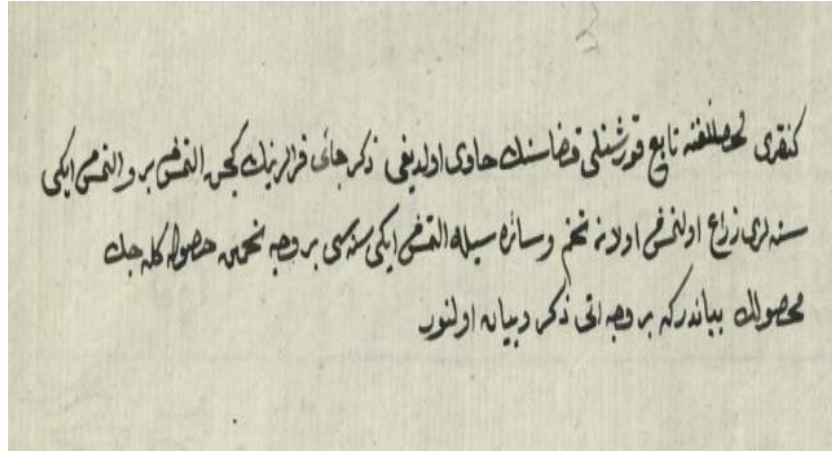 كنقرى محصللغنه تابع قورشنلى قضاسنك حاوى اولديغى ذكر جائى قرالرينك كچن التمش بر و التمش ايكى
سنه لرى زراع اولنمش اولان تخم و سائره سيله التمش ايكى سنه سى بر وجه تخمين حصوله كله جك
محصولك بياندركه بر وجه اتى ذكر و بيان اولنور